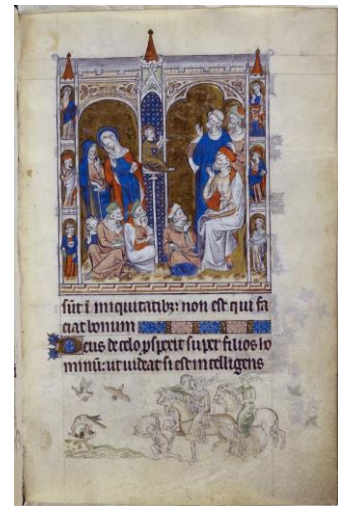 sūt ī iniquitatibȝ: non est qui fa
ciat bonum
Deus de celo ꝓspexit super filios ho
minū: ut uideat si est intelligens